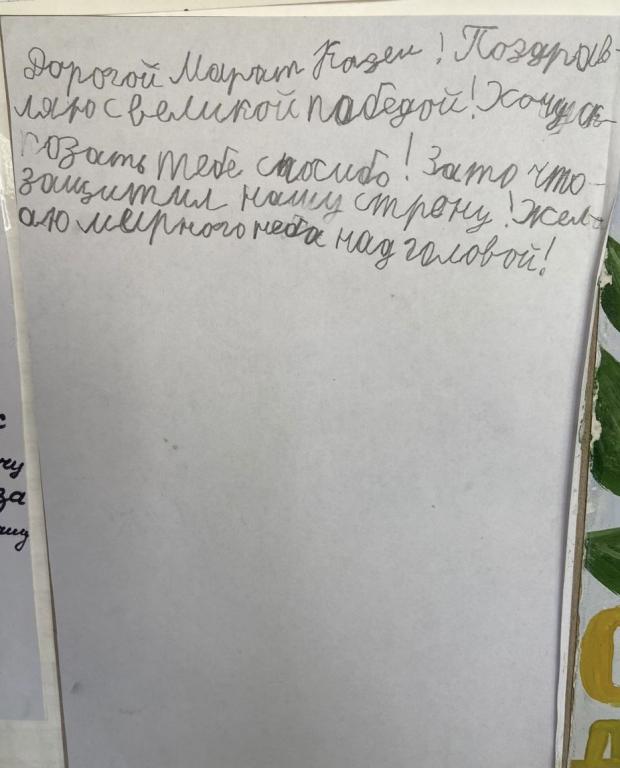 Дорогой Марат Казеи! Поздрав-
ляю с великой победой! Хочу ск-
козать тебе спосибо! Зато что
защитил нашу страну! Жел-
аю мирного неба над головой!
с
чу
за
ашу